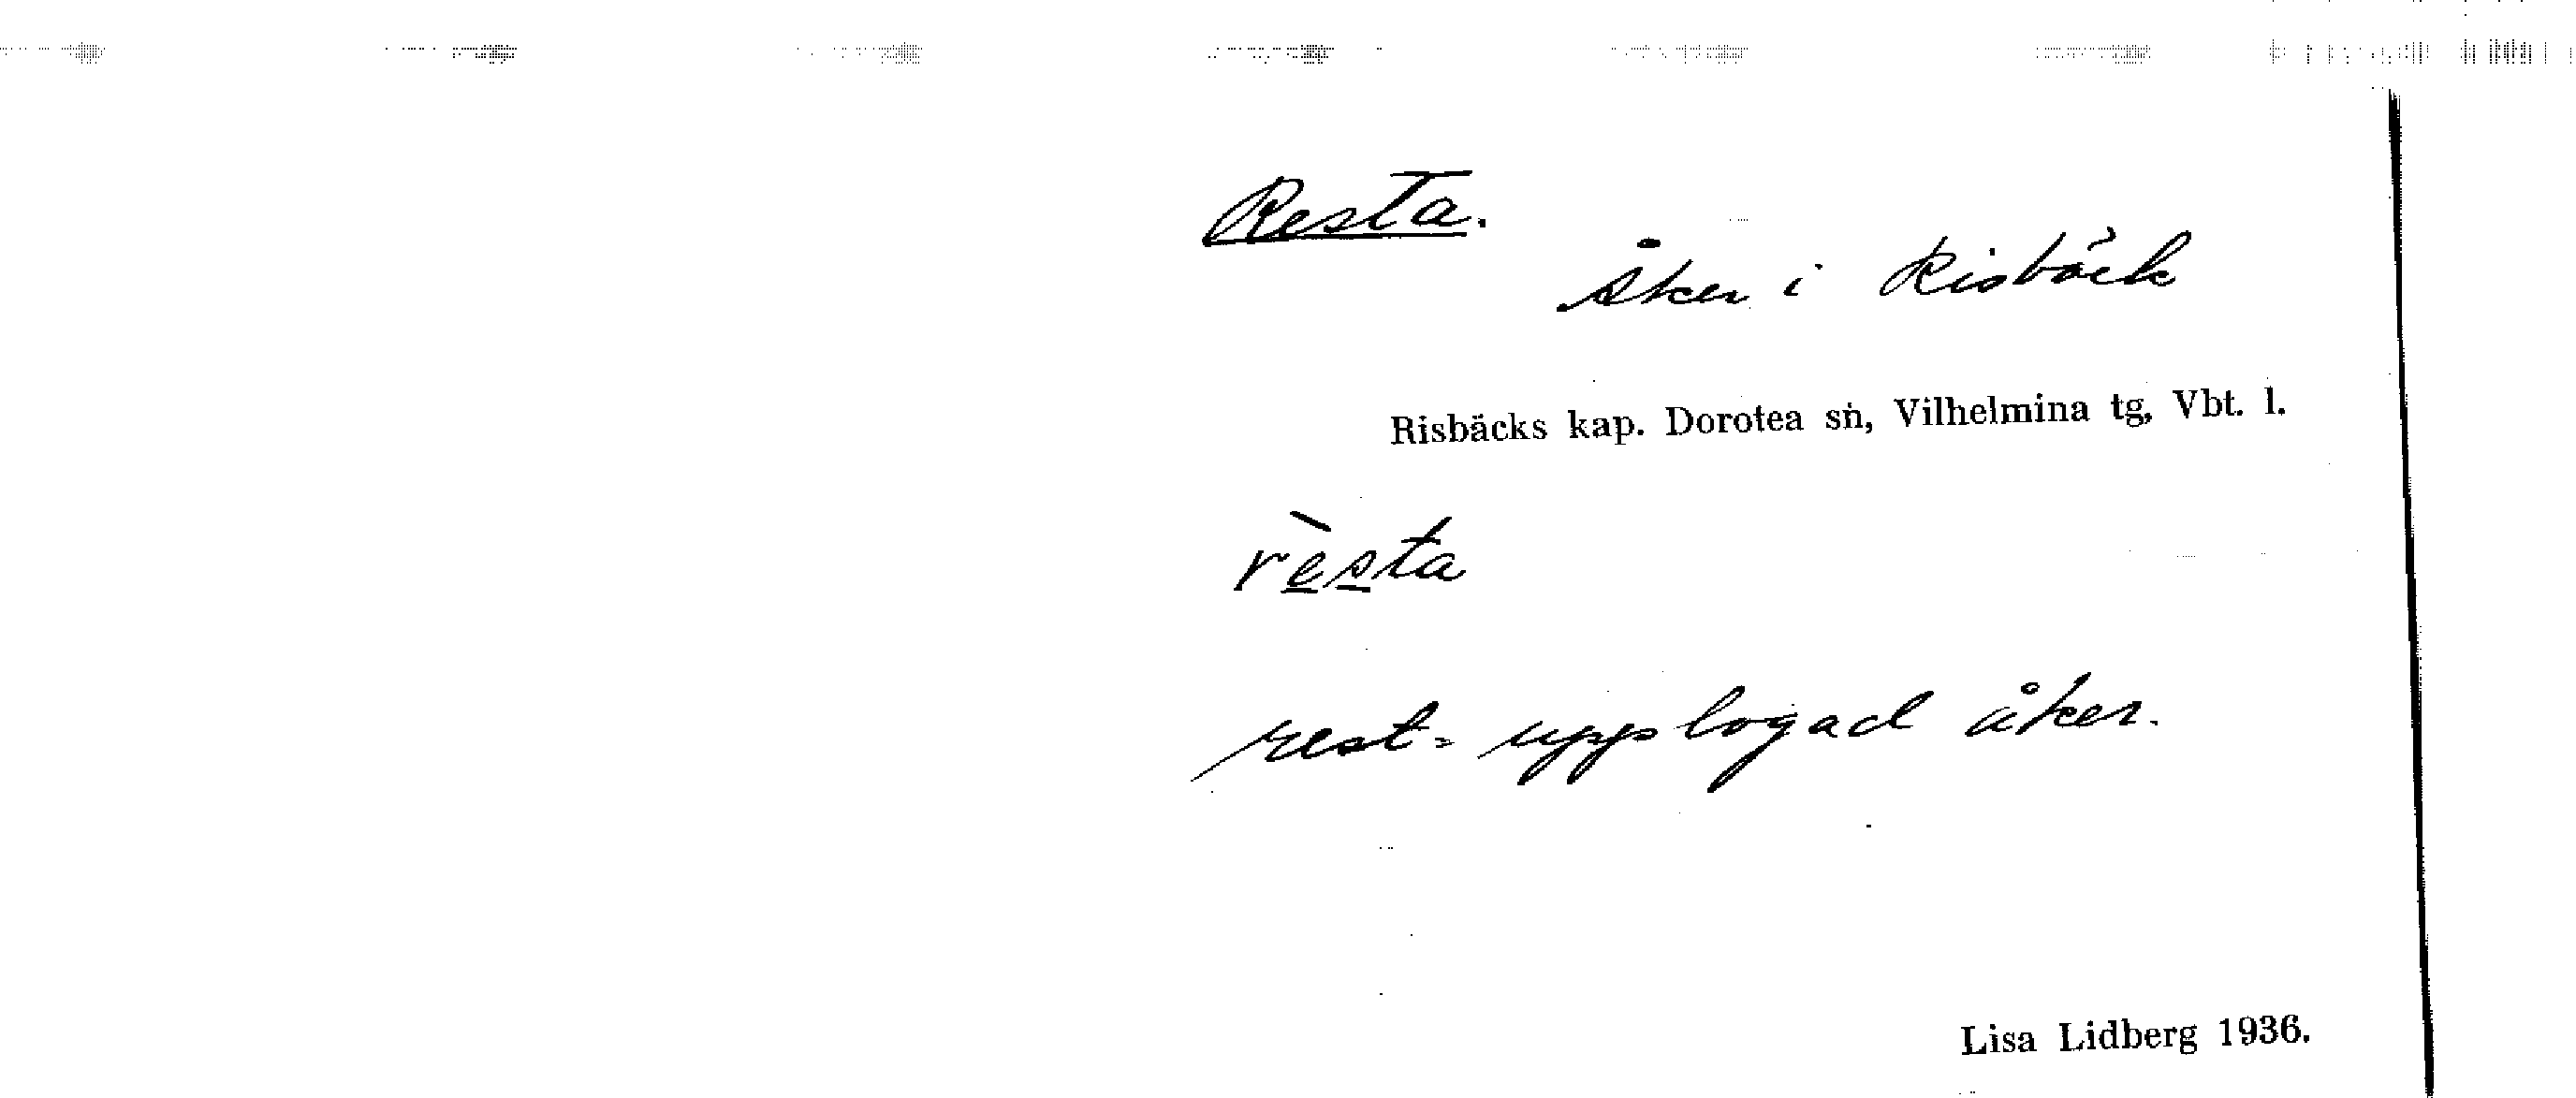 Resta.
Åker i Risbäck
Risbäcks kap. Dorotea sn, Vilhelmina tg, Vbt. l.
rèsta
rest = upplogad åker.
Lisa Lidberg 1936.